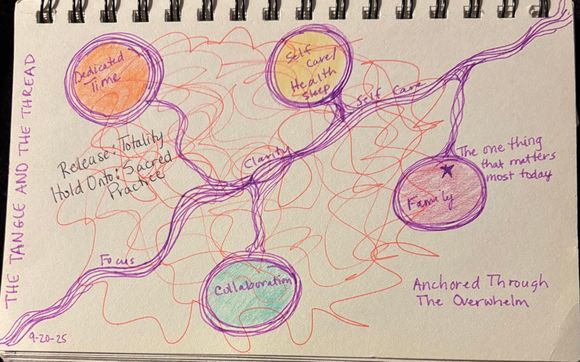 THE TANGLE AND THE THREAD
Dedicated
Time
Self
Care/
Health
Sleep
Self Care
Release: Totality
Hold Onto: Sacred
Practice
Clarity
The one thing
that matters
most today
Family
Focus
Collaboration
Anchored Through
The Overwhelm
9-20-25